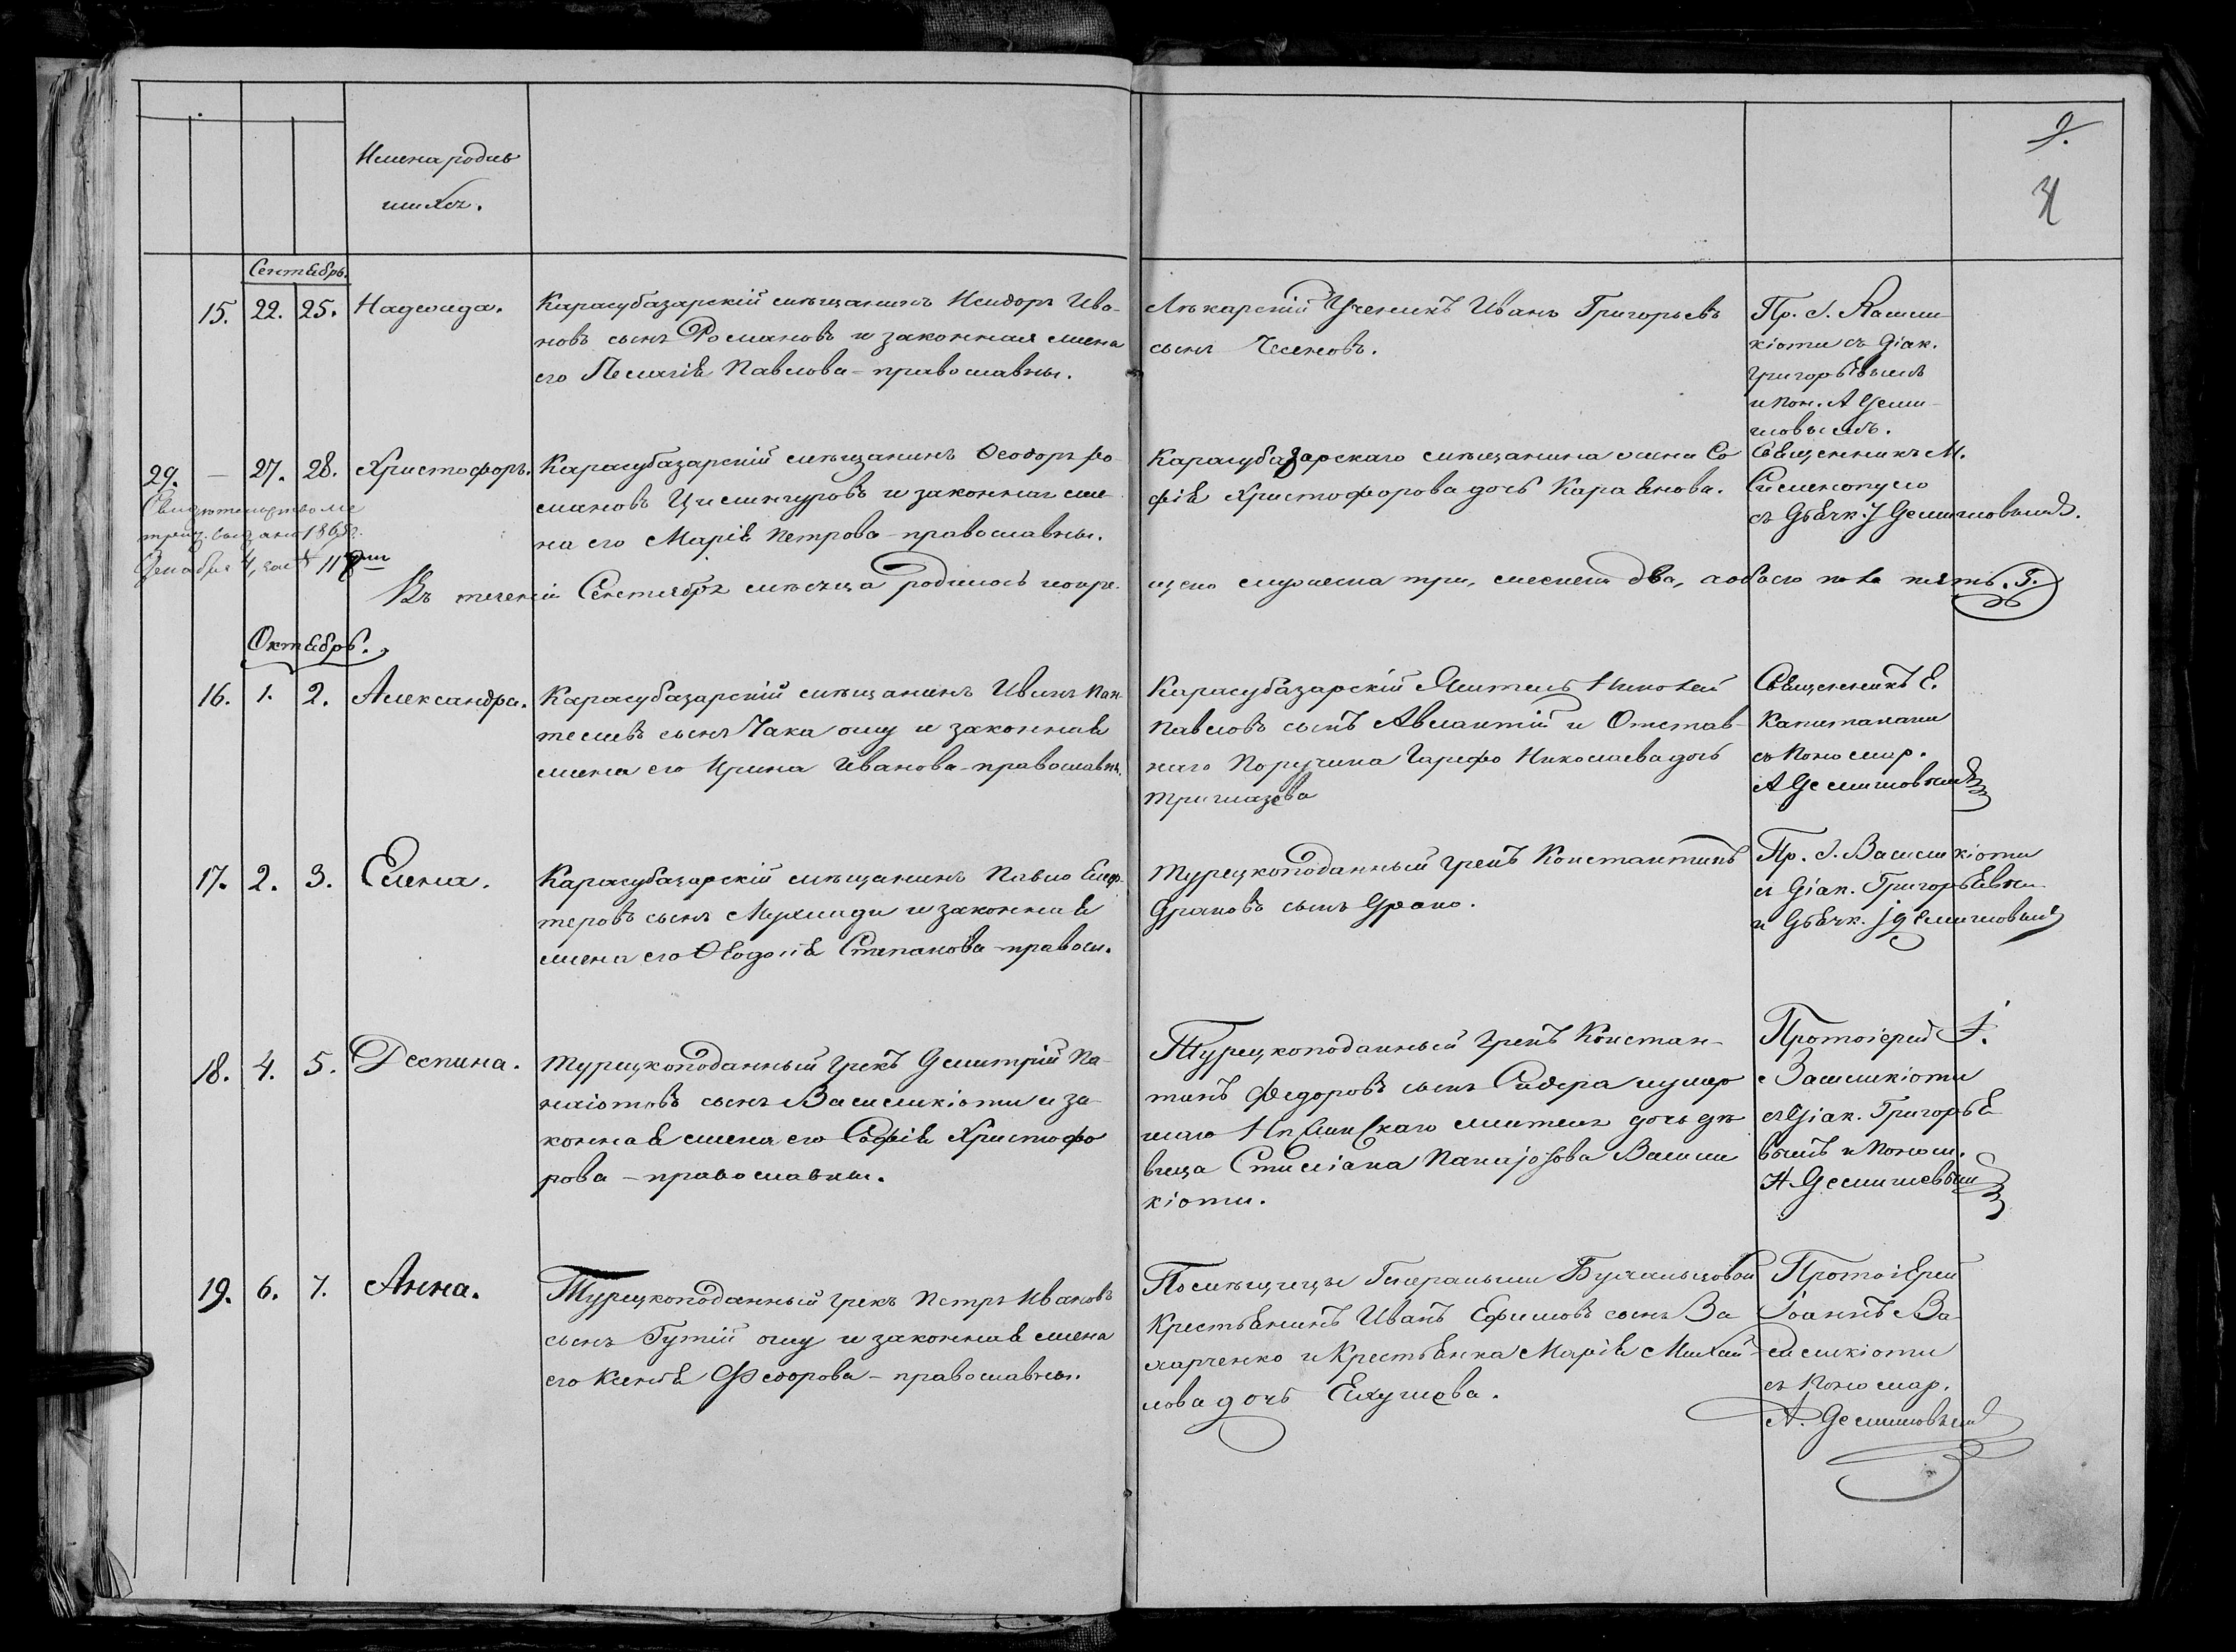 9.
Имена родив
шихся.
Сентябрь.
15. 22. 25. Надежда.
Карасубазарскій мѣщанинъ Исидоръ Ива-
новъ сынъ Романовъ и законная жена
его Пелагія Павлова - православны.
Лѣкарскій Ученикъ Иванъ Григорьевъ
сынъ
Пр. І.
кіоти съ Діак.
Григорьевымъ
и Пон. А Деми-
товымъ.
29. — 27. 28. Христофоръ.
Свидѣтельство ме
трич. выдано 186
Декабря 4, за №
Карасубазарскій мѣщанинъ Ѳеодоръ Ро
мановъ и законная же
на его Марія Петрова - православны.
Карасубазарскаго мѣщанина жена Со
фія Христофорова дочь Караянова.
Священникъ М.
съ Дьячк. І Демишовымъ.
Въ теченіи Сентября мѣсяца родилось и окре-
щено мужеска три, женска два, а обоего пола пять.
Октябрь.
16. 1. 2. Александра.
Карасубазарскій мѣщанинъ Иванъ Пан
телеевъ сынъ Чака оглу и законная
жена его Ирина Иванова - православны.
Карасубазарскій Житель Николай
Павловъ сынъ Авламтій и Отстав-
наго Поручика Гарефо Николаева дочь
Священникъ Е.
Капитанаки
съ Пономар.
А Демишовымъ
17. 2. 3. Елена.
Карасубазарскій мѣщанинъ Павло Елеф-
теровъ сынъ и законная
жена его Ѳеодосія Степанова - правосл.
Турецкоподанный грекъ Константинъ
Драковъ сынъ Драко.
Пр. І. Василикіоти
съ Діак. Григорьевым
и Дьячк. І Демишовымъ
18. 4. 5. Деспина.
Турецкоподанный грекъ Димитрій Па-
наіотовъ сынъ Василикіоти и за-
конная жена его Софія Христофо
рова - православны.
Турецкоподанный грекъ Констан-
тинъ Федоровъ сынъ Сидера и умер
шаго жителя дочь дѣ
вица Стиліана Панаіотова Васили
кіоти.
Протоіерей І.
Василикіоти
съ Діак. Григорье
вымъ и Поном.
А Демишевым
19. 6. 7. Анна.
Турецкоподанный грекъ Петръ Ивановъ
сынъ Гутій оглу и законная жена
его Ксенія Федорова - православны.
Помѣщицы Генеральши
Крестьянинъ Иванъ Ефимовъ сынъ За
харченко и Крестьянка Марія Михай
лова дочь
Протоіерей
Іоаннъ Ва
силикіоти
съ Пономар.
А. Демишовымъ